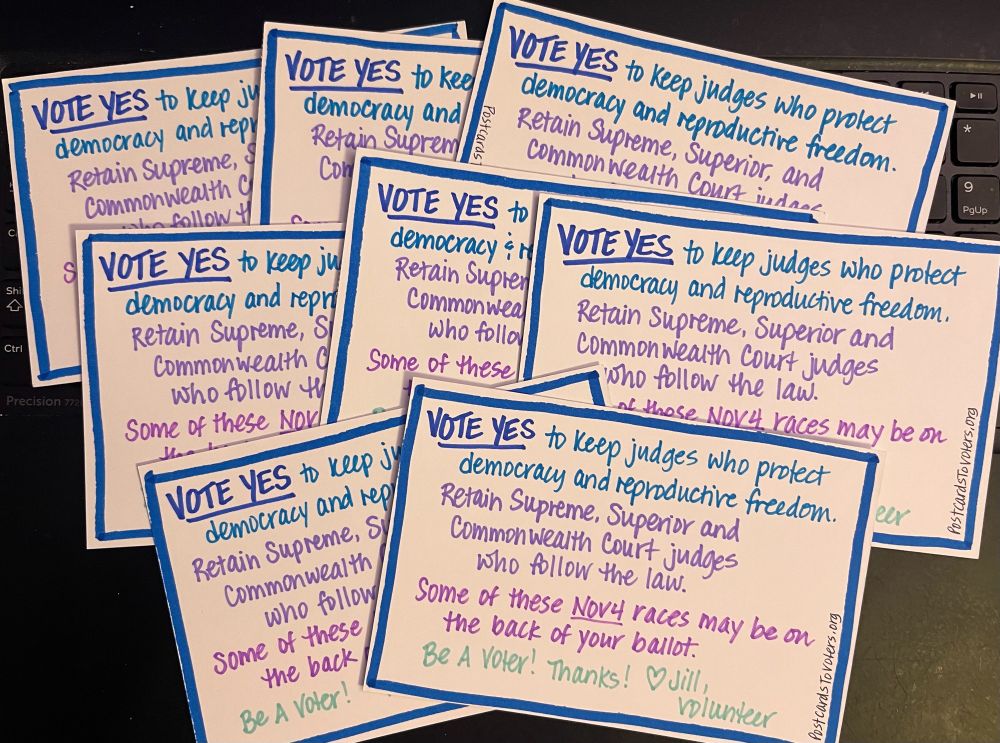 VOTE YES to keep ju
democracy and repr
Retain Supreme, S
Commonwealth C
who follow t
S
VOTE YES to kee
democracy and
Retain Suprem
Com
S
VOTE YES to keep judges who protect
democracy and reproductive freedom.
Retain Supreme, Superior, and
Commonwealth Court judges
PostcardsT
VOTE YES to keep ju
democracy and repr
Retain Supreme, S
Commonwealth C
who follow th
Some of these Nov
VOTE YES to
democracy & r
Retain Suprem
Commonwea
who follo
Some of these
VOTE YES to keep judges who protect
democracy and reproductive freedom.
Retain Supreme, Superior and
Commonwealth Court judges
who follow the law.
of these Nov4 races may be on
eer
PostcardsToVoters.org
VOTE YES to keep ju
democracy and rep
Retain Supreme, S
Commonwealth
who follow
Some of these
the back
Be A Voter!
VOTE YES to keep judges who protect
democracy and reproductive freedom.
Retain Supreme, Superior and
Commonwealth Court judges
who follow the law.
Some of these Nov4 races may be on
the back of your ballot.
Be A Voter! Thanks! ♡Jill,
volunteer
PostcardsToVoters.org
*
9
PgUp
Shi
Ctrl
Precision 772